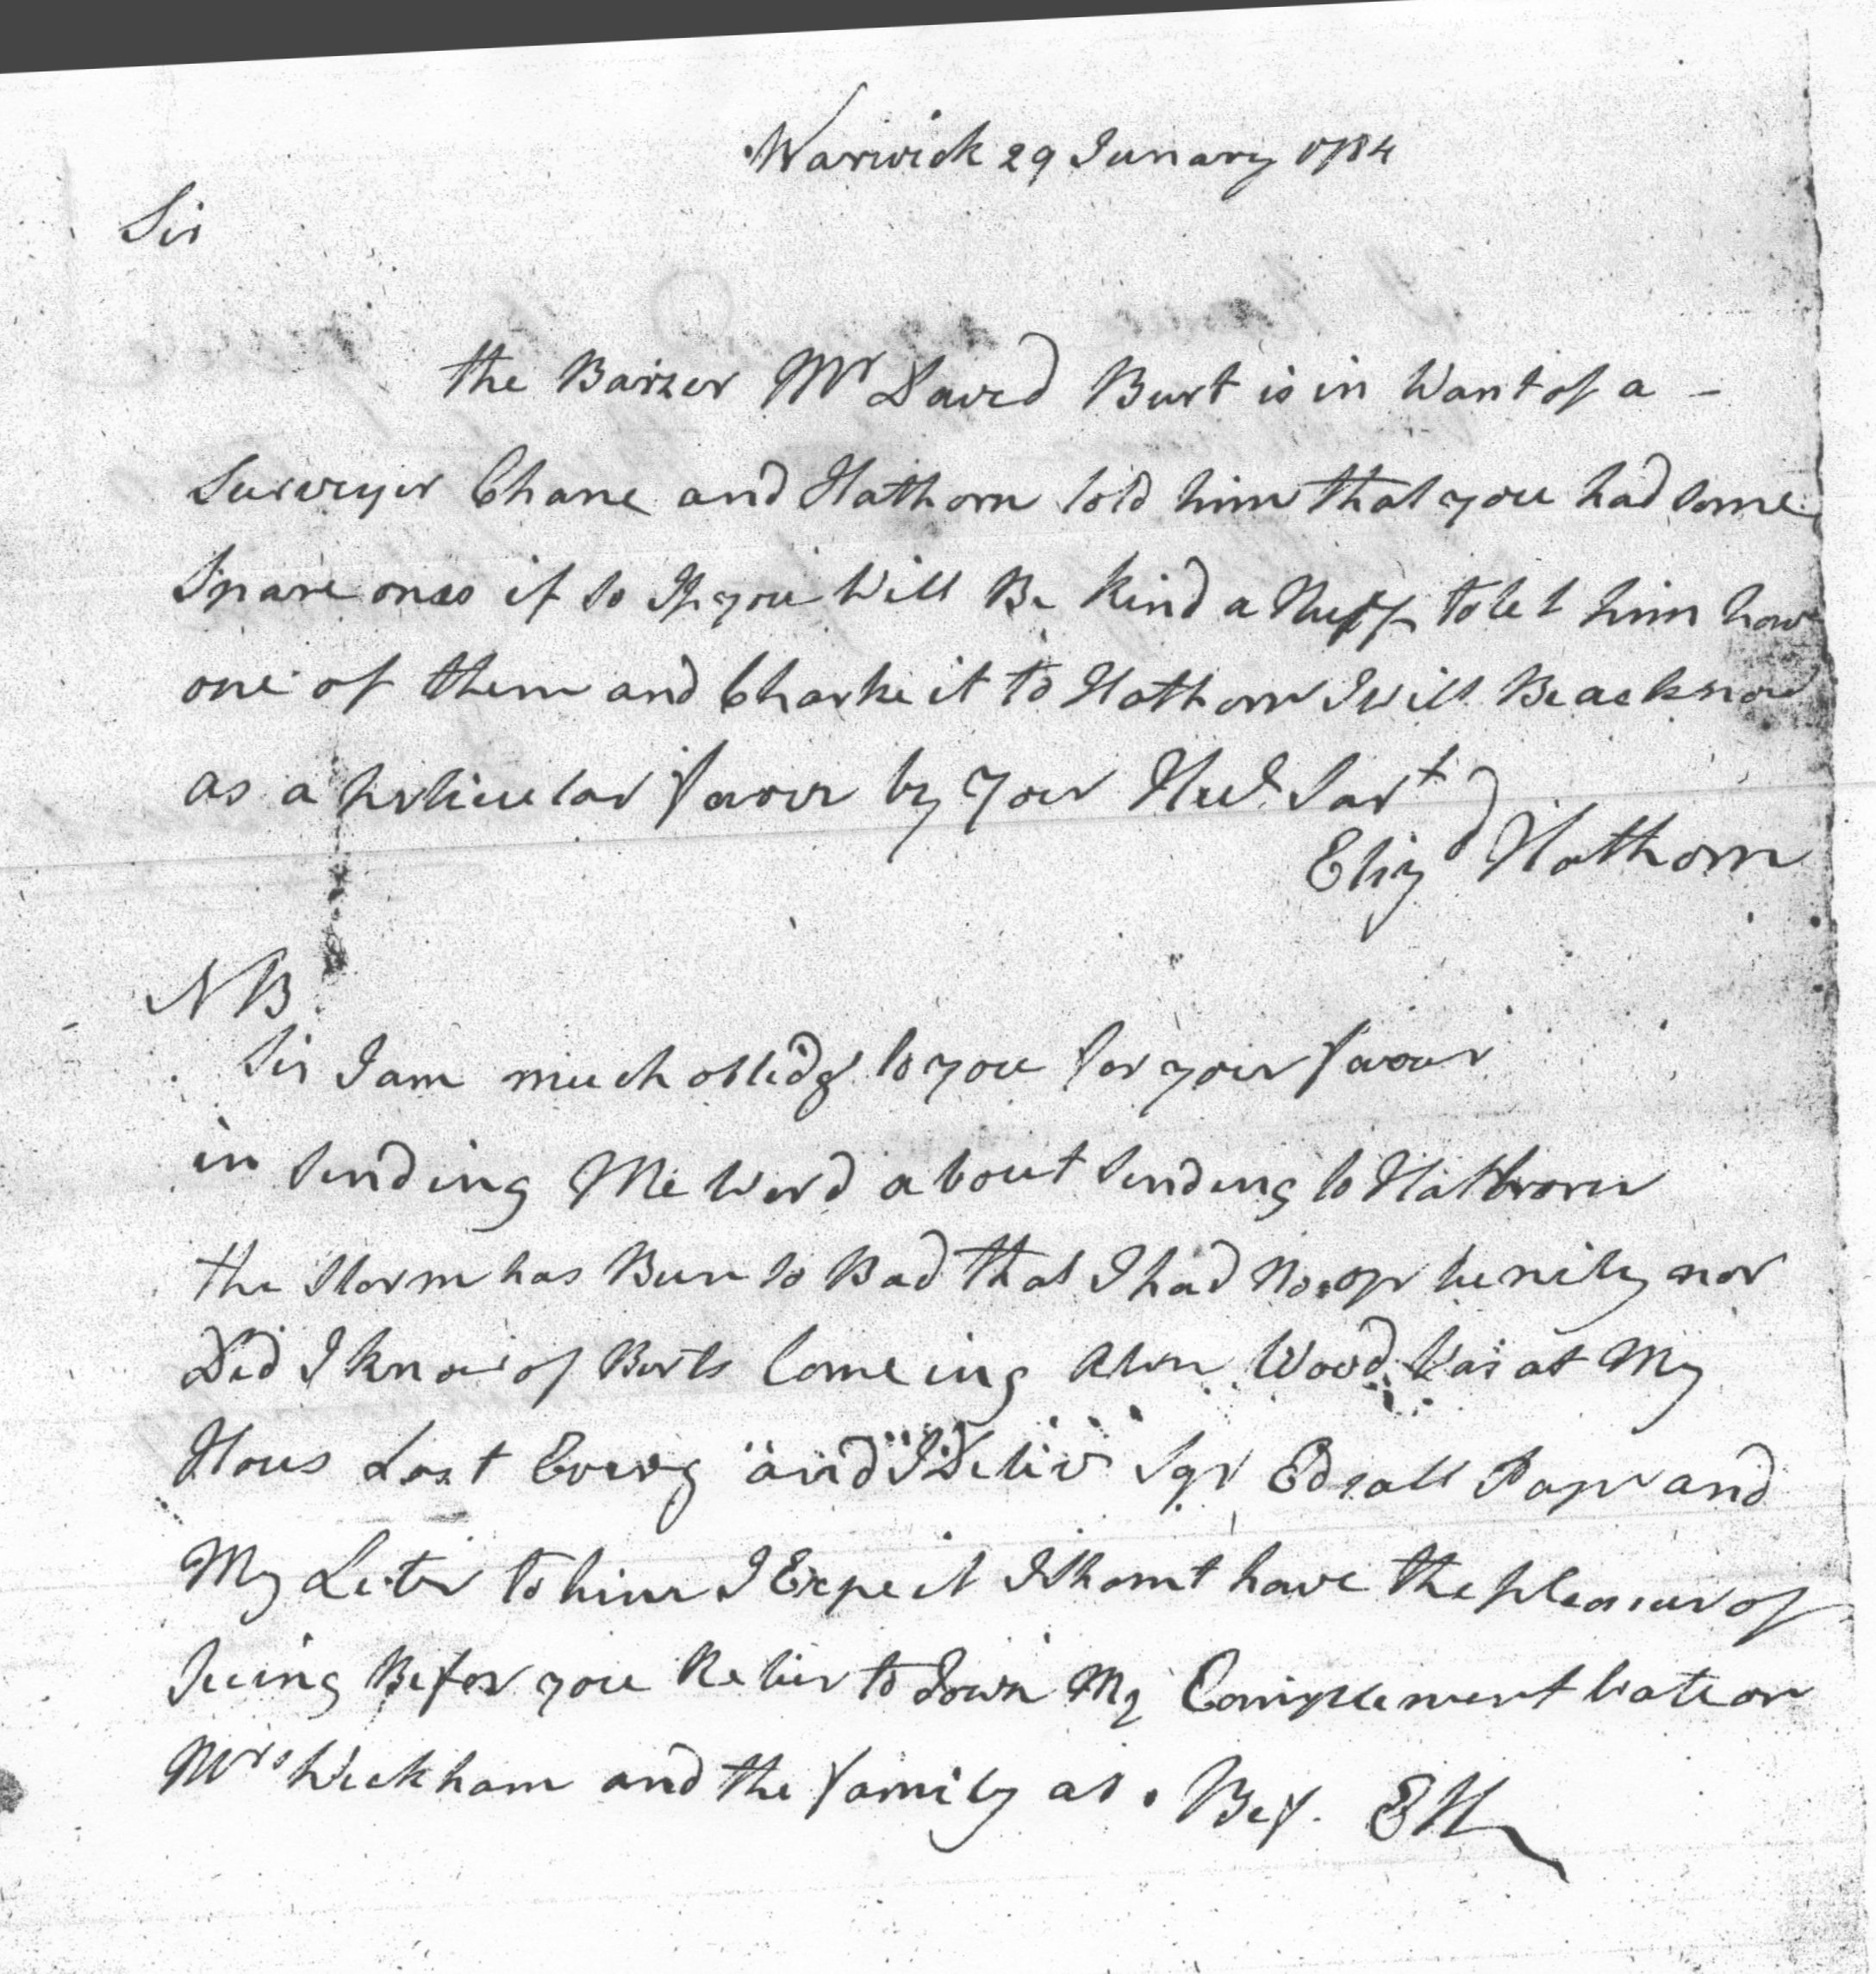 Warwick 29 Junary 1784
Sir
the Barzer Mr Daved Burt is in Want of a -
Surveyir Chane and Hathorn told him that you had some
Spare ones if so If you Will Be Kind a Nuff to let him have
one of them and Charke it to Hathorn I will Be acknow
as a perticular favour by your Hue Sart
Eliz Hathorn
NB
Sir I am much oblidg to you for your favour
in sending Me Word about sending to Hathrorn
the Storm has Been so Bad that I had No oprtunity nor
Did I know of Burts Comeing Wood Was at My
Hous Last Eveng and I Deliv Sqr Edsall Papr and
My Leter to him I Expect I shont have the pleasur of
Seeing Befor you Retur to down My Complement Wate on
Mrs Wickham and the family as Bef. EH